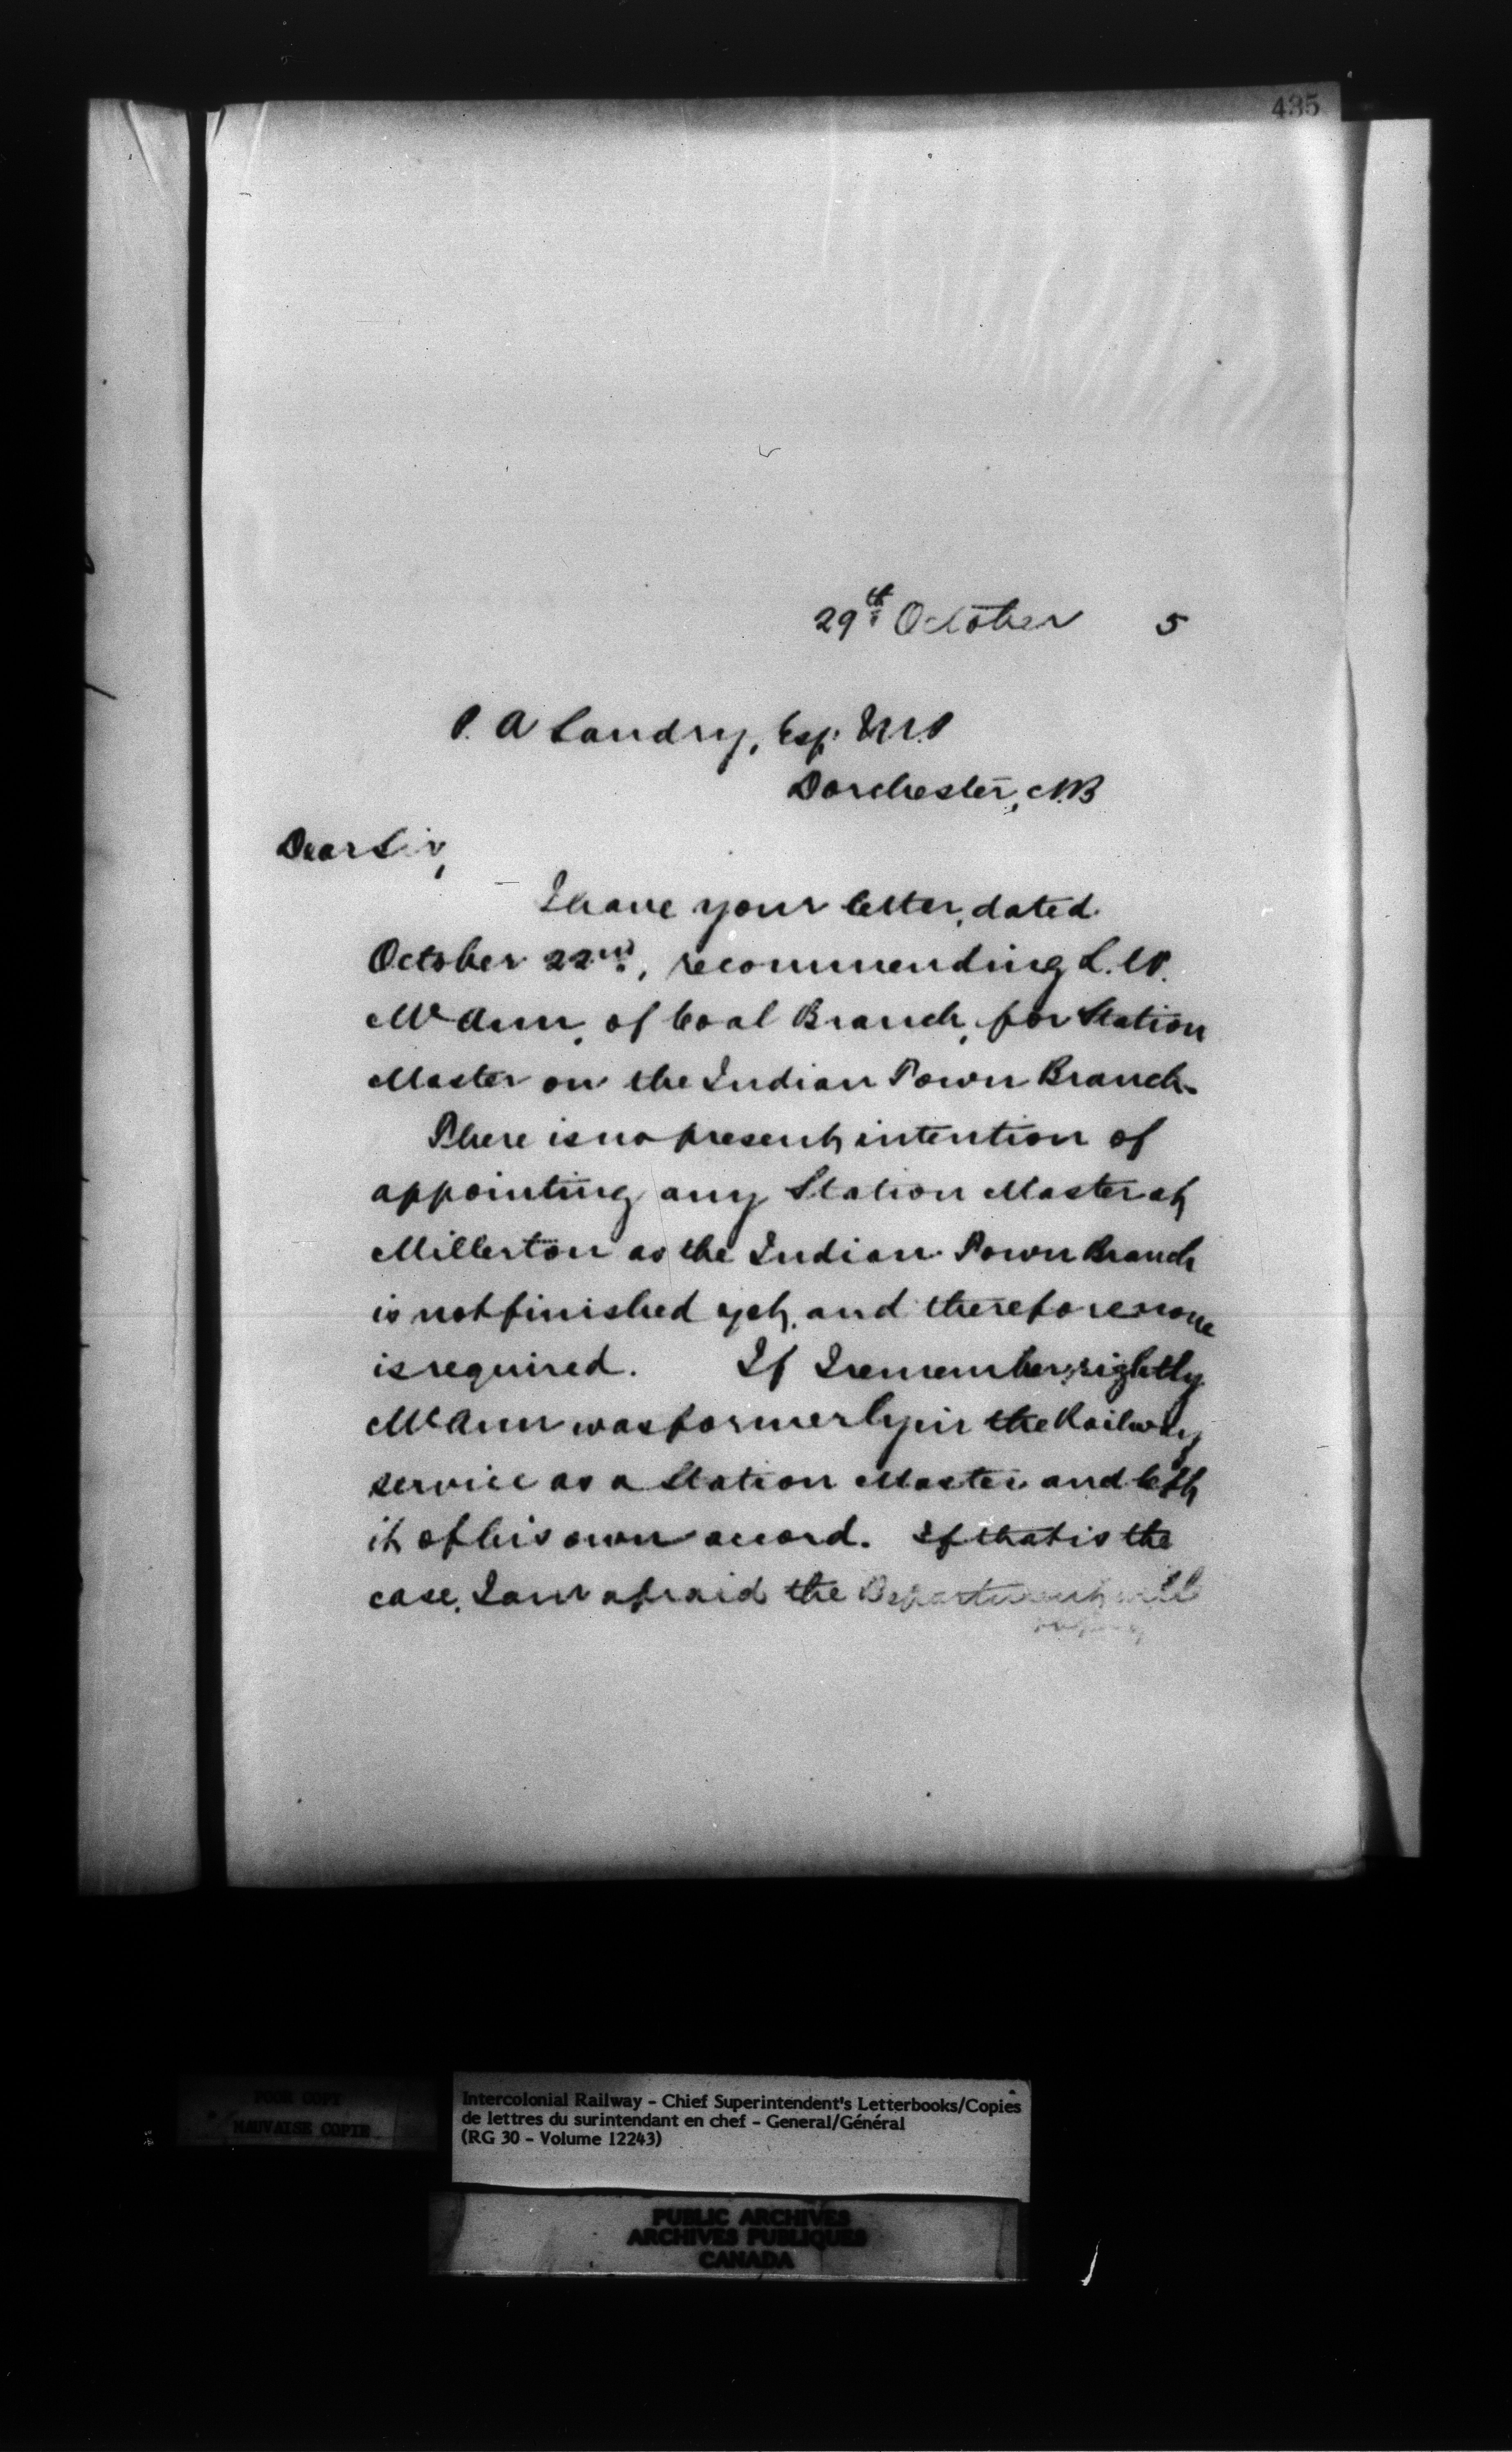 435
29th October 5
P. A Landry, Esq. M.P
Dorchester, N.B
Dear Sir,
I have your letter, dated
October 22nd, recommending L. W.
McAnn, of Coal Branch, for Station
Master on the Indian Town Branch.
There is no present intention of
appointing any Station Master at
Millerton as the Indian Town Branch
is not finished yet, and therefore none
is required. If I remember rightly
McAnn was formerly in the Railway
service as a Station Master and left
it of his own accord. If that is the
case, I am afraid the Department will
POOR COPY
MAUVAISE COPIE
Intercolonial Railway - Chief Superintendent's Letterbooks/Copies
de lettres du surintendant en chef - General/Général
(RG 30 - Volume 12243)
PUBLIC ARCHIVES
ARCHIVES PUBLIQUES
CANADA